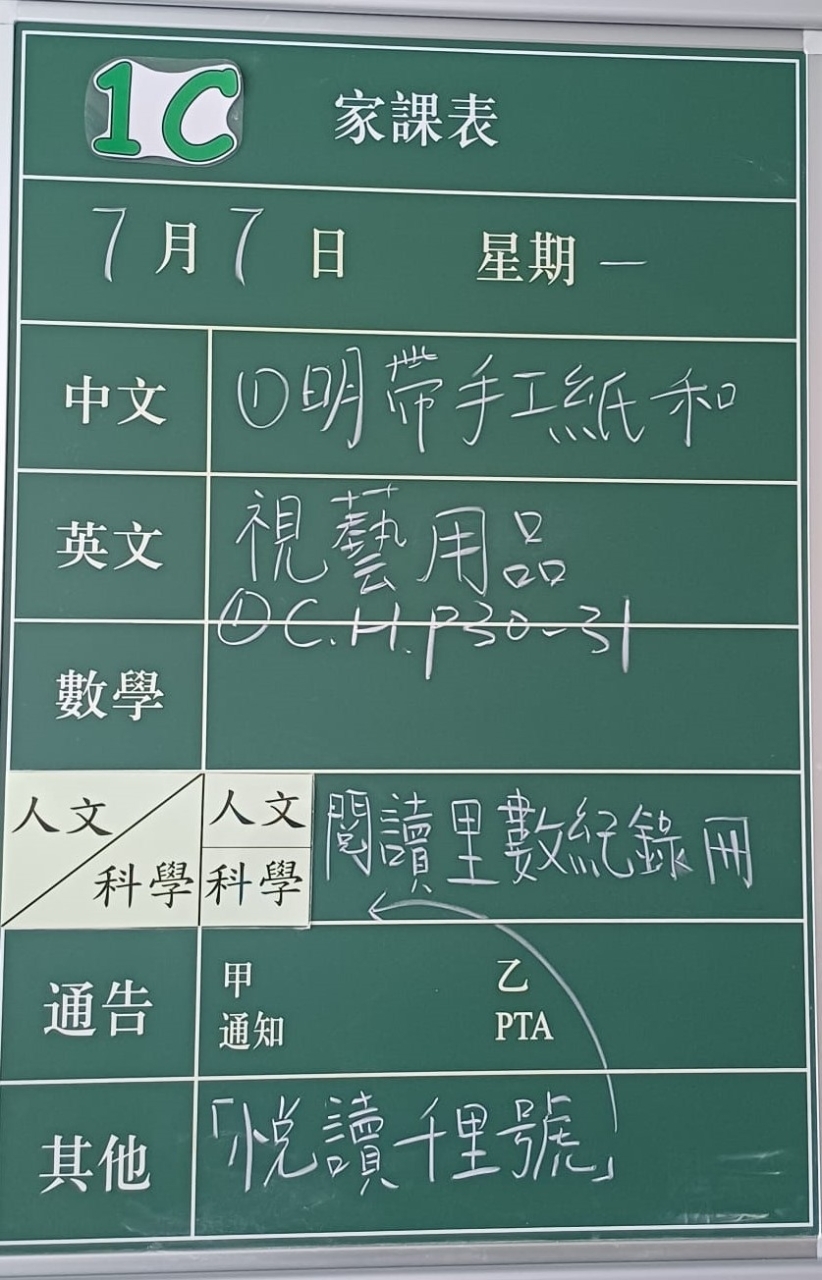 1C 家課表
7月7日 星期一
中文 ①明帶手工紙和
英文 視藝用品
①C.H.P30-31
數學
人文 人文 閱讀里數紀錄冊
科學 科學
通告 甲 乙
通知 PTA
其他 「悅讀千里號」